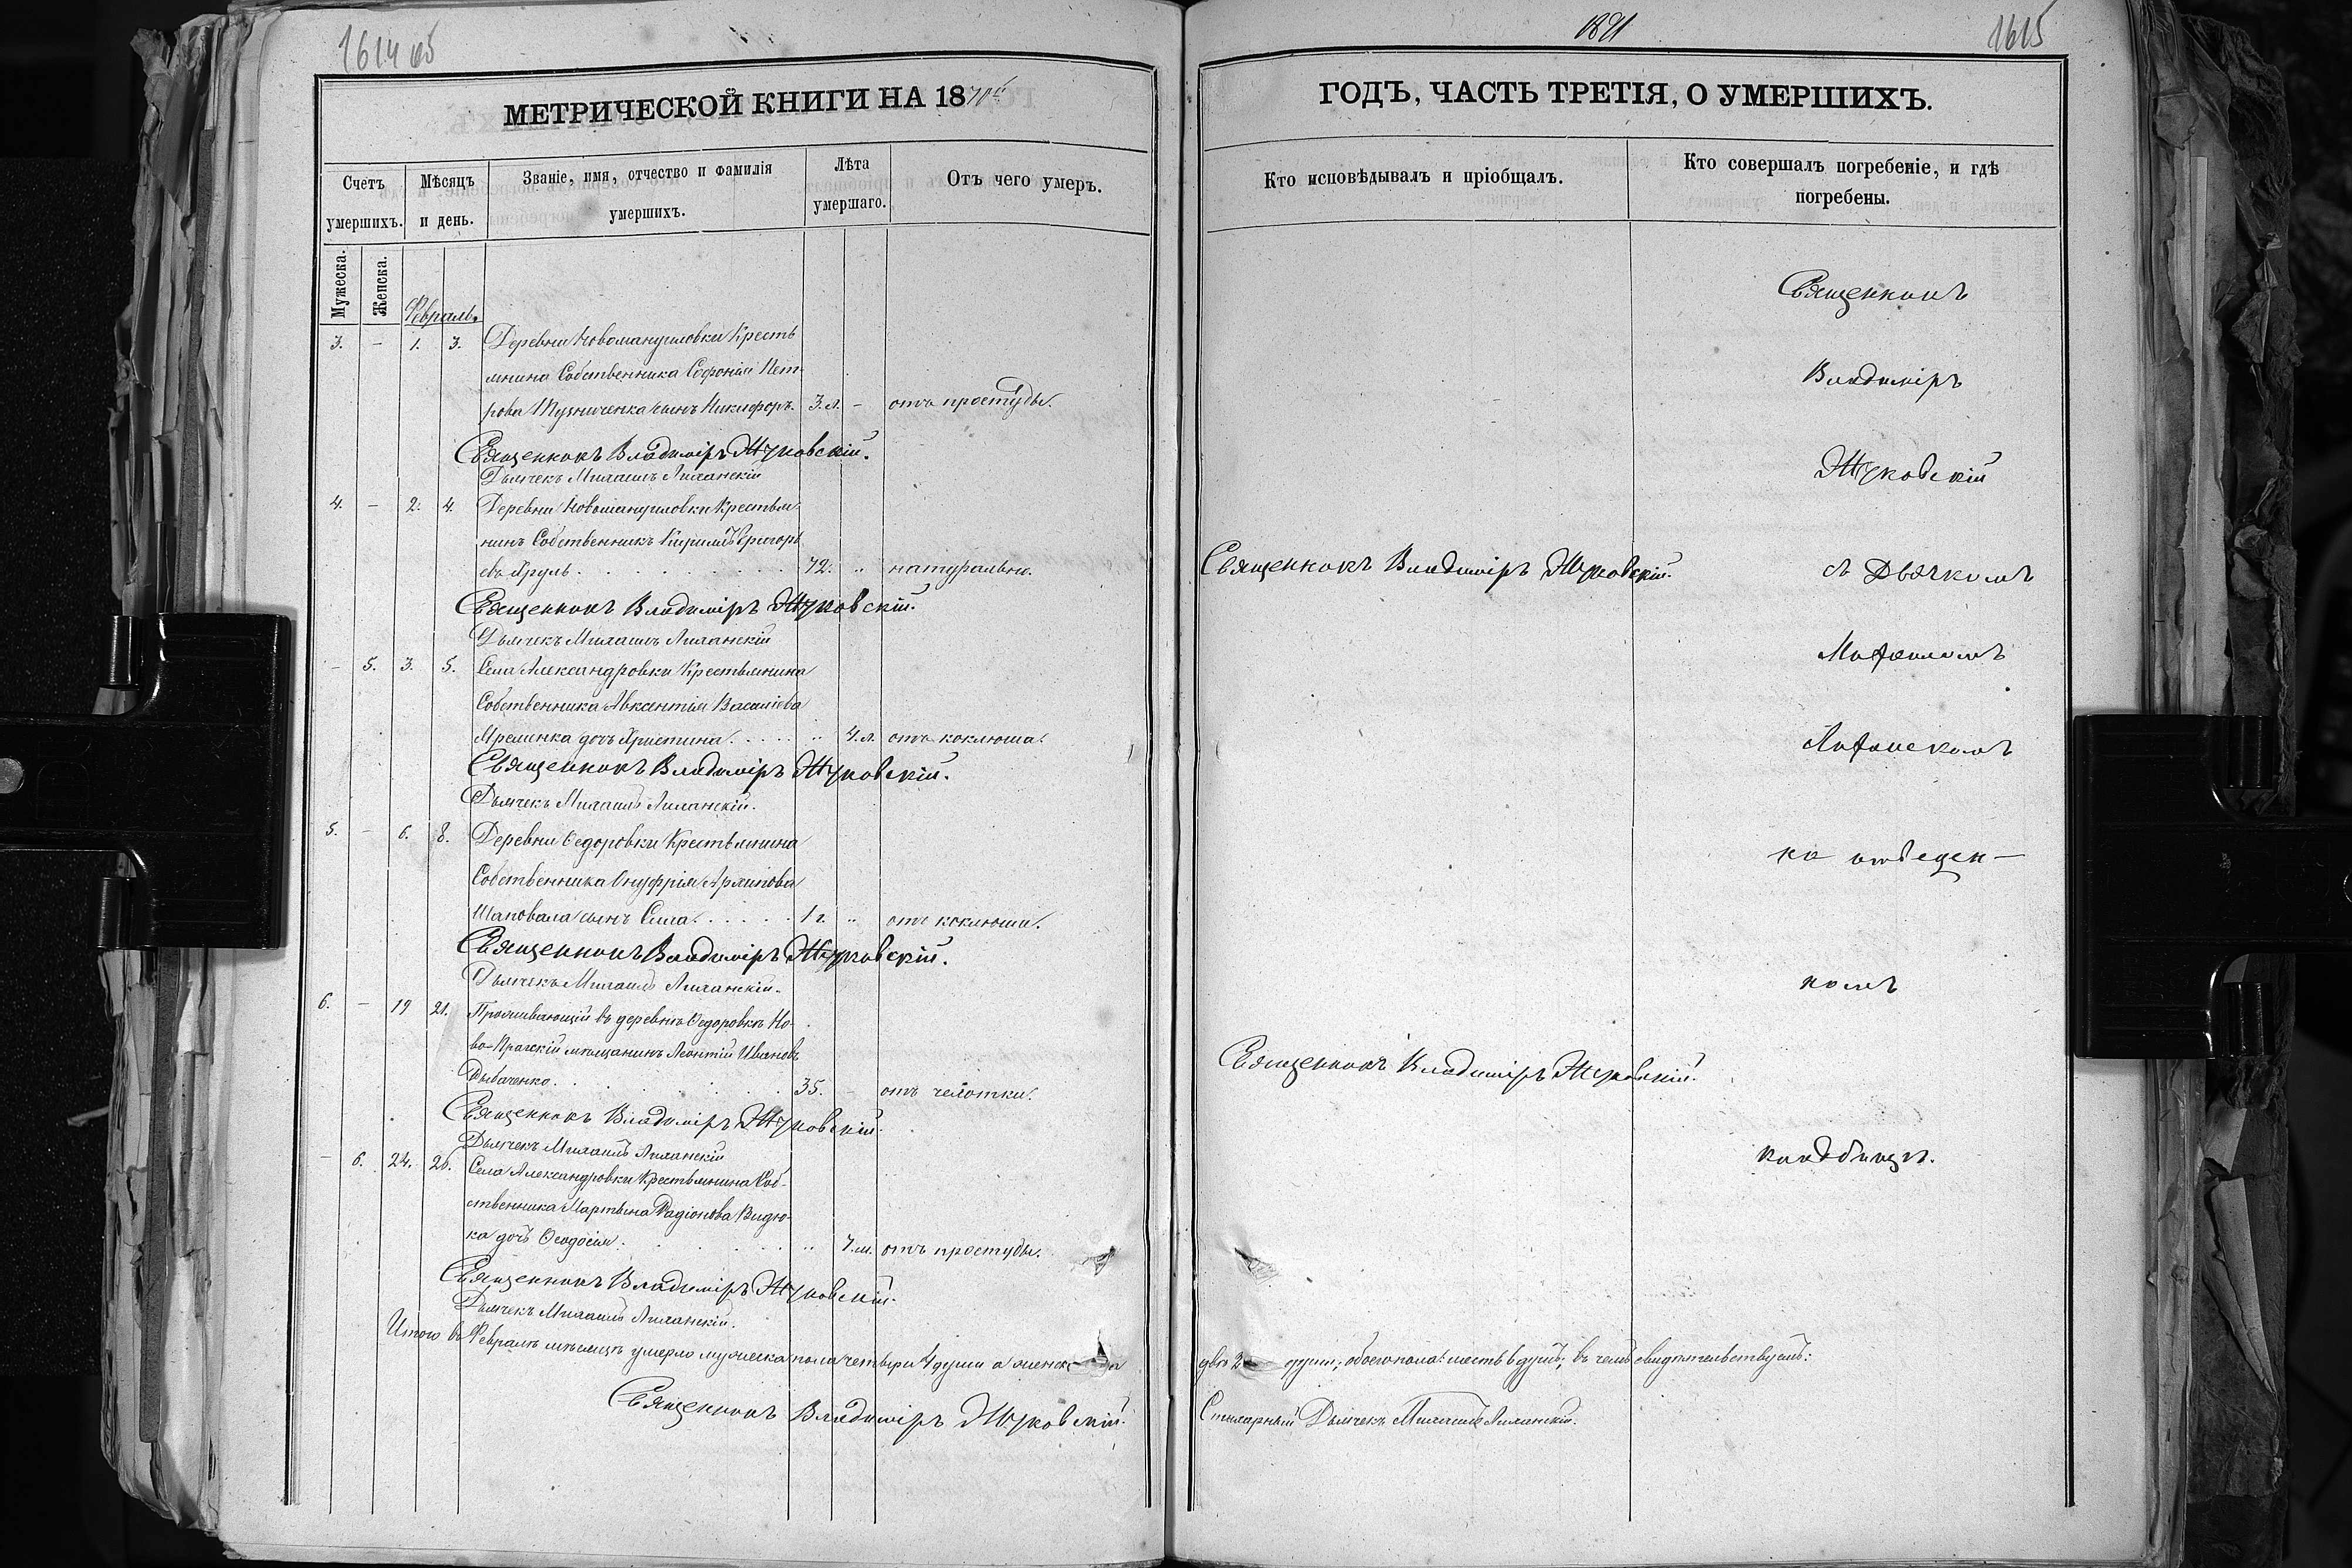 1614 об
МЕТРИЧЕСКОЙ КНИГИ НА 1870й
Счетъ умершихъ.
Мужеска.
Женска.
Мѣсяцъ и день.
Званіе, имя, отчество и фамилія умершихъ.
Лѣта умершаго.
Отъ чего умеръ.
Февраль.
3. – 1. 3. Деревни Новомануиловки Кресть
янина Собственника Софронія Пет
рова сынъ Никифоръ. 3. л. – отъ простуды.
Священникъ Владиміръ Жуковскій.
Дьячекъ Михаилъ
4. – 2. 4. Деревни Новомануиловки Крестья
нинъ Собственникъ Кириллъ Григорь
евъ Круль . . . 72. „ натурально.
Священникъ Владиміръ Жуковскій.
Дьячекъ Михаилъ
– 5. 3. 5. Села Александровки Крестьянина
Собственника Авксентія Василіева
дочь Христина . . . „ отъ коклюша.
Священникъ Владиміръ Жуковскій.
Дьячекъ Михаилъ
5. – 6. 8. Деревни Ѳедоровки Крестьянина
Собственника Онуфрія Архипова
Шаповала сынъ Сила . . . 1 г. „ отъ коклюша.
Священникъ Владиміръ Жуковскій.
Дьячекъ Михаилъ
6. – 19 21. Проживающій въ деревнѣ Ѳедоровкѣ Но-
во-Прагскій мѣщанинъ Леонтій Ивановъ
35. – отъ чехотки.
Священникъ Владиміръ Жуковскій.
Дьячекъ Михаилъ
– 6. 24. 26. Села Александровки Крестьянина Соб-
ственника Мартына Радіонова Видю-
ка дочь Ѳеодосія . . . „ отъ простуды.
Священникъ Владиміръ Жуковскій.
Дьячекъ Михаилъ
Итого въ Февралѣ мѣсяцѣ умерло мужеска пола четыри 4 души а женск
Священникъ Владиміръ Жуковскій.
1871
1615
ГОДЪ, ЧАСТЬ ТРЕТІЯ, О УМЕРШИХЪ.
Кто исповѣдывалъ и пріобщалъ.
Кто совершалъ погребеніе, и гдѣ
погребены.
Священникъ
Владиміръ
Жуковскій
Священникъ Владиміръ Жуковскій.
съ Дьячкомъ
Михаиломъ
на отведен-
номъ
Священникъ Владиміръ Жуковскій.
кладбищѣ.
двѣ 2 души; обоего пола: шесть 6 душъ; въ чемъ свидѣтельствуемъ:
Стихарный Дьячекъ Михаилъ